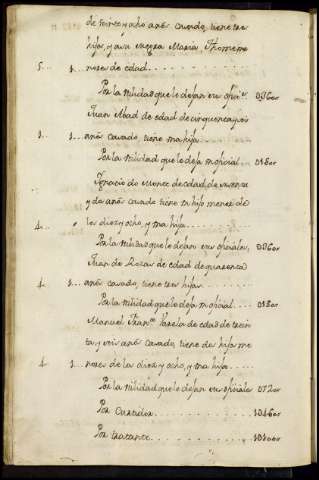 de treinta y ocho años casado, tiene tres
hijos, y una
5... 1... nores de edad
Por la utilidad que le dejan sus ofiz.s 096 or
Juan Abad de edad de cinquenta y seis
3. 1... años casado, tiene una hija
Por la utilidad que le deja su oficial 018 or
Ignacio do Monte de edad de quarenta
y dos años casado tiene un hijo menor de
4.. los diez y ocho, y una hija
Por la utilidad que le dejan sus oficiales, 036 or
Juan de Rozas de edad de quarenta
4. 1... años casado, tiene tres hijas
Por la utilidad que le deja su oficial 018 or
Manuel Fran.co Varela de edad de trein
ta y seis años casado, tiene dos hijos me
4. 1... nores de los diez y ocho, y una hija
Por la utilidad que le dejan sus oficiales 072 or
Por Cortador
Por tratante